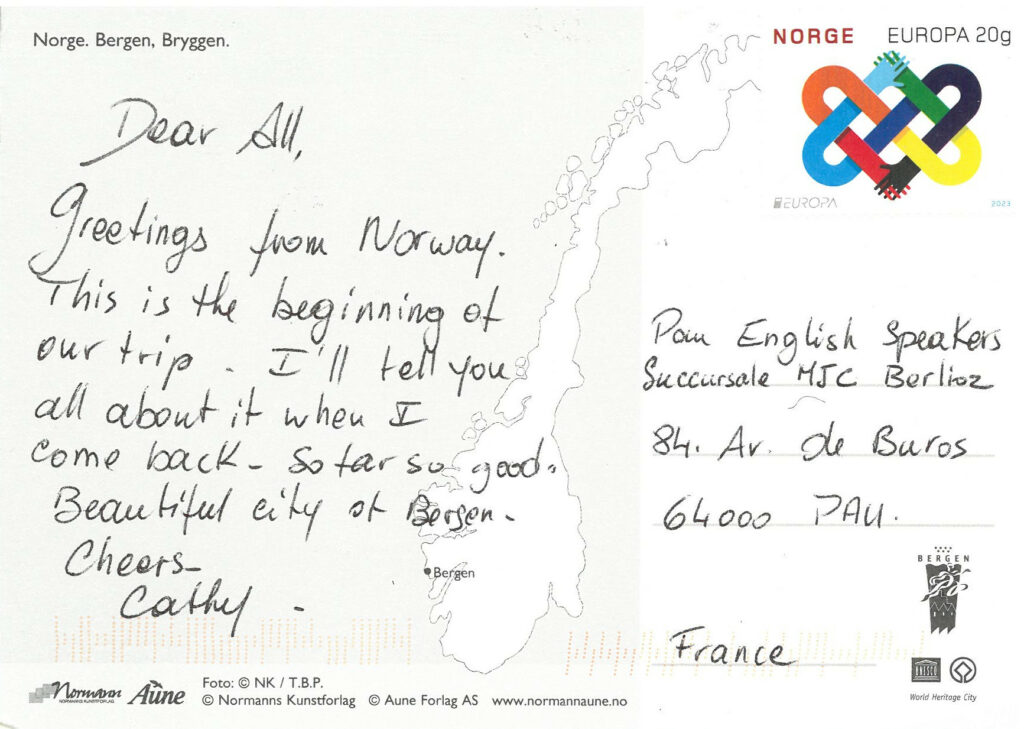 Norge. Bergen, Bryggen.
Dear All,
Greetings from Norway.
This is the beginning of
our trip. I'll tell you
all about it when I
come back. So far so good.
Beautiful city of Bergen.
Cheers
Cathy.
Bergen
Normann
NORMANNS KUNSTFORLAG
Aune
Foto: © NK / T.B.P.
© Normanns Kunstforlag © Aune Forlag AS www.normannaune.no
NORGE EUROPA 20g
EUROPA 2023
Pau English Speakers
Succursale MJC Berlioz
84. Av. de Buros
64000 PAU.
France
BERGEN
UNESCO
World Heritage City